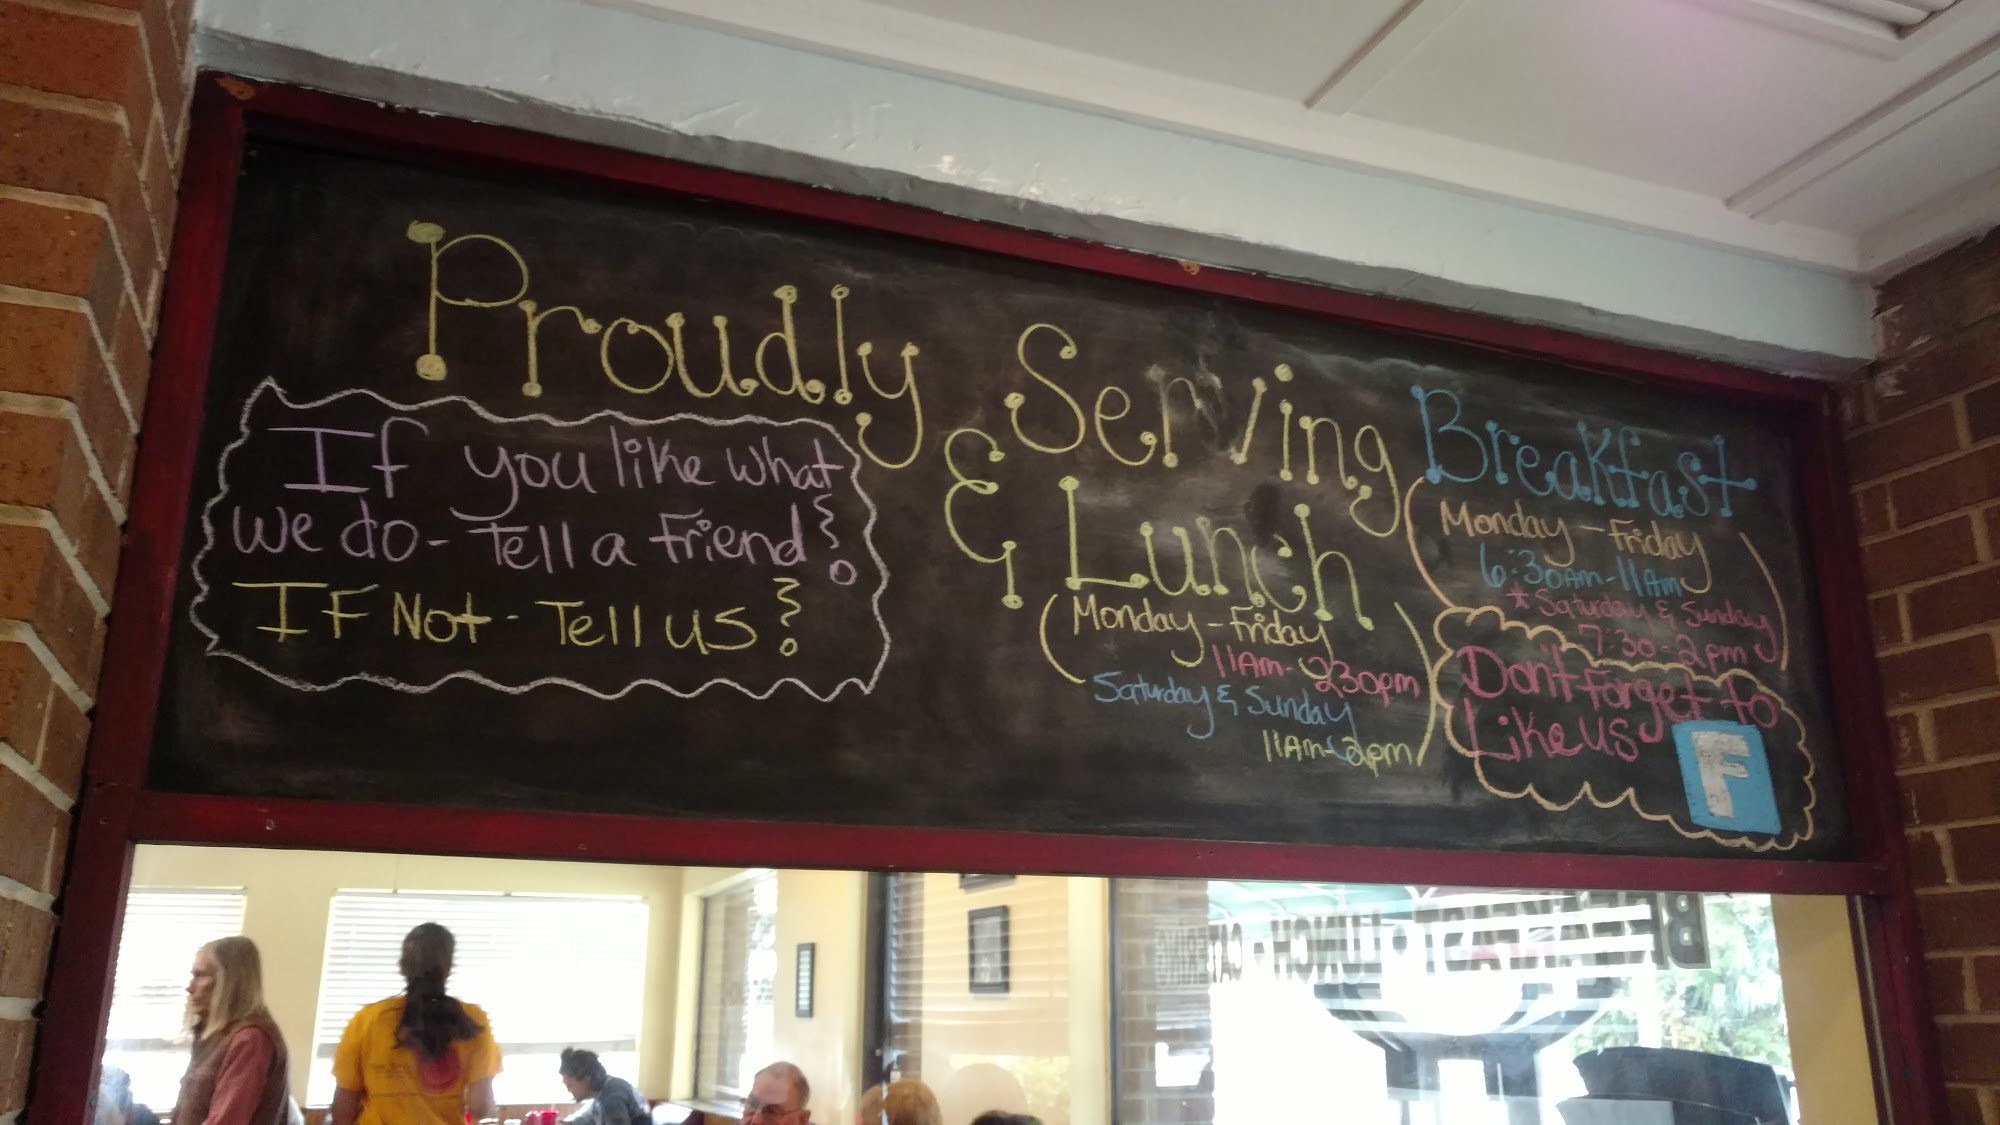 Proudly Serving Breakfast
& Lunch
If you like what
we do - Tell a Friend!
IF Not - Tell us!
Monday - Friday
6:30AM - 11Am
* Saturday & Sunday
7:30 - 2pm
Monday - Friday
11Am - 230pm
Saturday & Sunday
11Am - 2pm
Don't forget to
Like us
F
BREAKFAST LUNCH